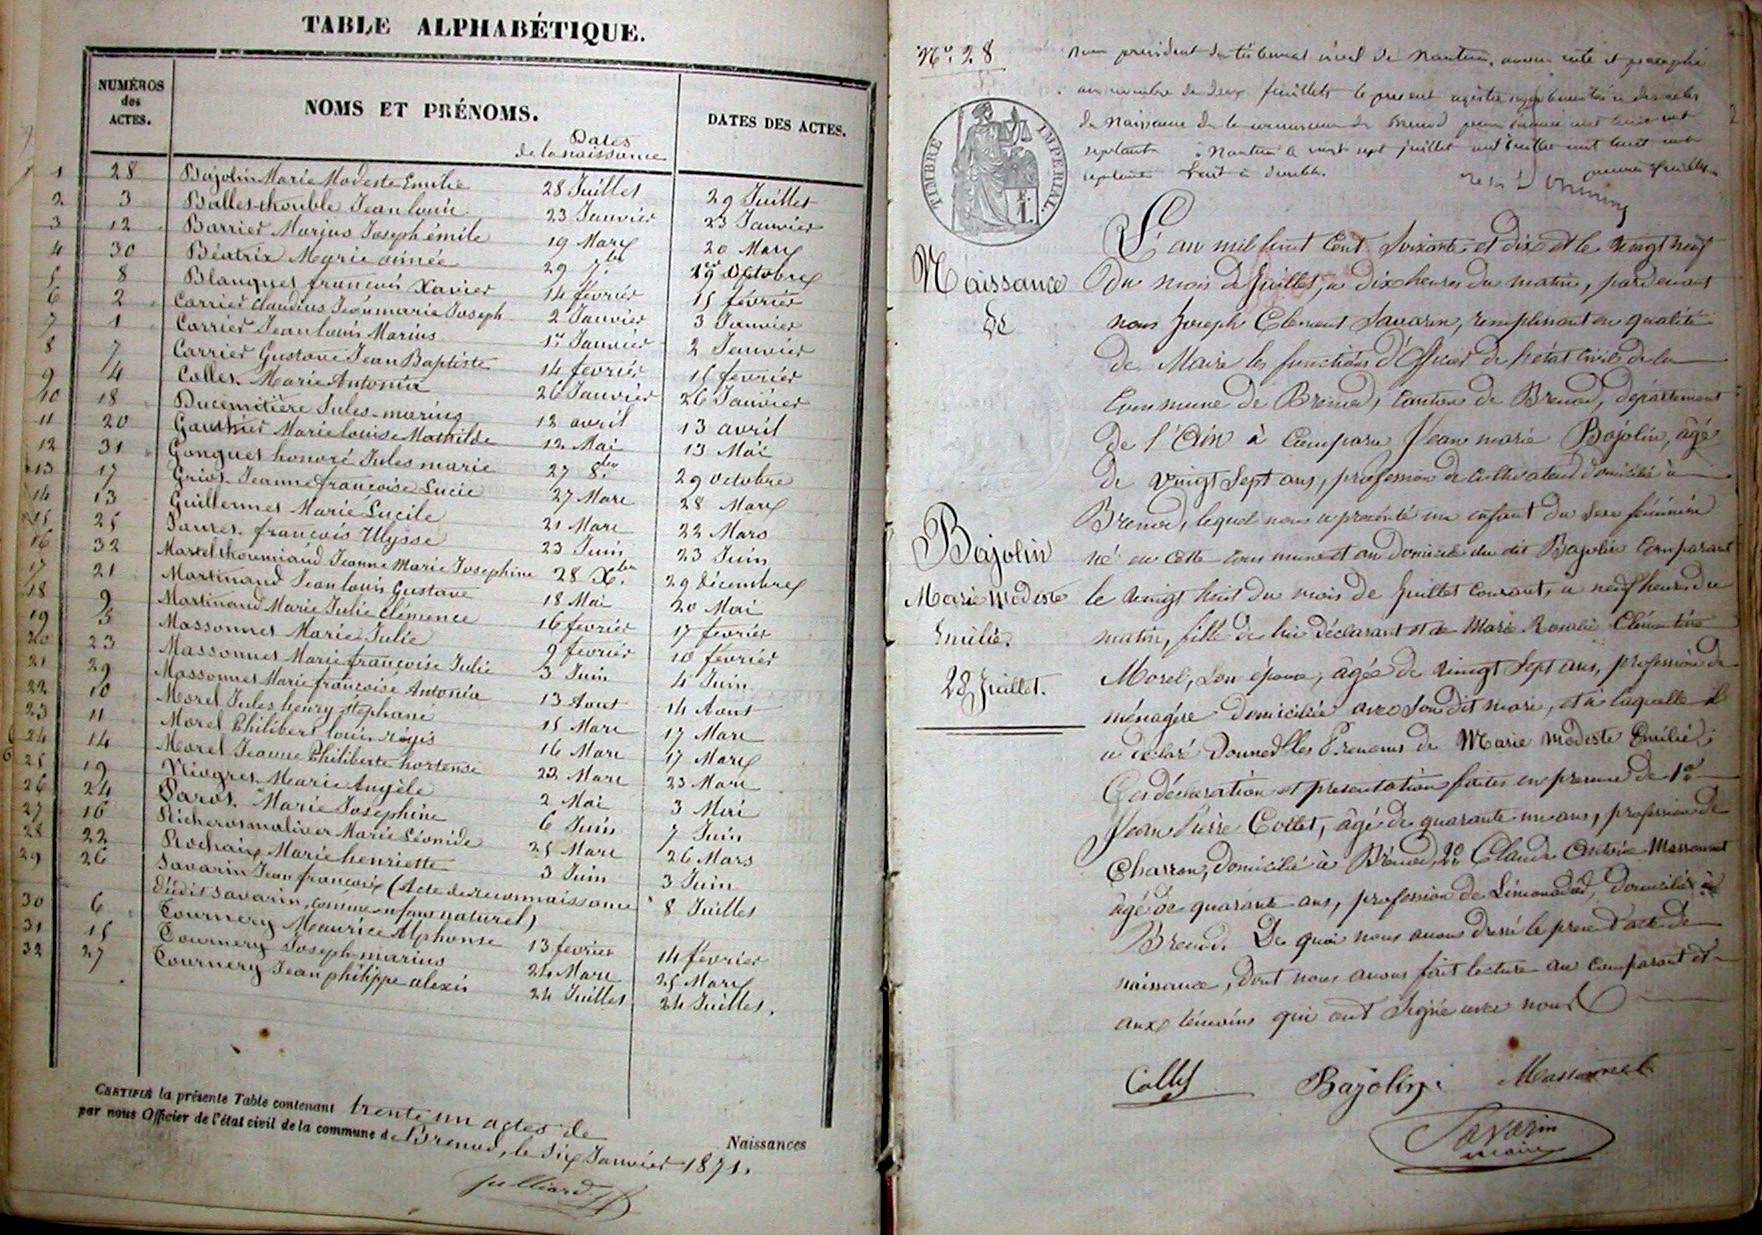 TABLE ALPHABÉTIQUE.
NUMÉROS des ACTES.
NOMS ET PRÉNOMS.
Dates de la naissance
DATES DES ACTES.
1 28 Bajolin Marie Modeste Emilie 28 Juillet 29 Juillet
2 3 Ballet-thouble Jean louis 23 Janvier 23 Janvier
3 12 Barrier Marius Joseph émile 19 Mars 20 Mars
4 30 Béatrix Marie aimée 29 7.bre 1er Octobre
5 8 Blanguet françois Xavier 14 fevrier 15 fevrier
6 2 Carrier claudius Jean marie Joseph 2 Janvier 3 Janvier
7 1 Carrier Jean louis Marius 1er Janvier 2 Janvier
8 7 Carrier Gustave Jean Baptiste 14 fevrier 15 fevrier
9 4 Collet Marie Antonia 26 Janvier 26 Janvier
10 18 Ducimitière Jules-marius 12 avril 13 avril
11 20 Gauthier Marie louise Mathilde 12 Mai 13 Mai
12 31 Gonguet honoré Jules marie 27 8.bre 29 octobre
13 17 Griot Jeanne françoise Lucie 27 Mars 28 Mars
14 13 Guillermet Marie Lucile 21 Mars 22 Mars
15 25 Janret françois Ulysse 23 Juin 23 Juin
16 32 Martel thoumiand Jeanne Marie Josephine 28 X.bre 29 décembre
17 21 Martinand Jean louis Gustave 18 Mai 20 Mai
18 9 Martinand Marie Julie Clémence 16 fevrier 17 fevrier
19 5 Massonnet Marie Julie 9 fevrier 10 fevrier
20 23 Massonnet Marie françoise Julie 3 Juin 4 Juin
21 29 Massonnet Marie françoise Antonia 13 Aout 14 Aout
22 10 Morel Jules henry stéphane 15 Mars 17 Mars
23 11 Morel Philibert louis régis 16 Mars 17 Mars
24 14 Morel Jeanne Philiberte hortense 22 Mars 23 Mars
25 19 Niogret Marie Angèle 2 Mai 3 Mai
26 24 Parot Marie Josephine 6 Juin 7 Juin
27 16 Richerotmolinier Marie Léonide 25 Mars 26 Mars
28 22 Rochaix Marie henriette 3 Juin 3 Juin
29 26 Savarin Jean françois (Acte de reconnaissance
du dit savarin, comme enfant naturel) 8 Juillet
30 6 Tournery Maurice Alphonse 13 fevrier 14 fevrier
31 15 Tournery Joseph marius 24 Mars 25 Mars
32 27 Tournery Jean philippe alexis 24 Juillet 24 Juillet.
CERTIFIÉ la présente Table contenant trente un actes de Naissances
par nous Officier de l'état civil de la commune de Brenod, le six Janvier 1871.
Julliard
No. 28
Nous president du tribunal civil de Nantua, avons coté et paraphé
au nombre de deux feuillets le present registre supplementaire des actes
de Naissance de la commune de Brenod pour l'année mil huit cent
septante. Nantua le vingt sept juillet mil huit cent
septante. fait à double.
TIMBRE IMPÉRIAL.
Naissance
de
Bajolin
Marie modeste
Emilie.
28 Juillet.
L'an mil huit Cent Soixante et dix et le vingt neuf
du mois de Juillet, à dix heures du matin, pardevant
nous Joseph Clement Savarin, remplissant en qualité
de Maire les fonctions d'Officier de l'état Civil de la
Commune de Brenod, Canton de Brenod, département
de l'Ain à Comparu Jean marie Bajolin, âgé
de vingt Sept ans, profession de Cultivateur domicilié à
Brenod, lequel nous a presenté un enfant du Sexe féminin
né en cette commune et au Domicile du dit Bajolin Comparant
le vingt huit du mois de Juillet courant, à neuf heures du
matin, fille de lui déclarant et de Marie Rosalie Clémentine
Morel, Son épouse, âgée de vingt Sept ans, profession de
ménagère domiciliée avec Son dit mari, et à laquelle il
a déclaré Donner les Prenoms de Marie modeste Emilie;
Ces déclaration et presentation faites en presence de 1o
Jean Pierre Collet, âgé de quarante un ans, profession de
Charron, domicilié à Brénod, 2o Claude Antoine Massonnet
âgé de quarante ans, profession de Limonadier, domicilié à
Brenod. De quoi nous avons dressé le present acte de
naissance, dont nous avons fait lecture au Comparant et
aux témoins qui ont Signé avec nous
Collet Bajolin Massonnet
Savarin
maire